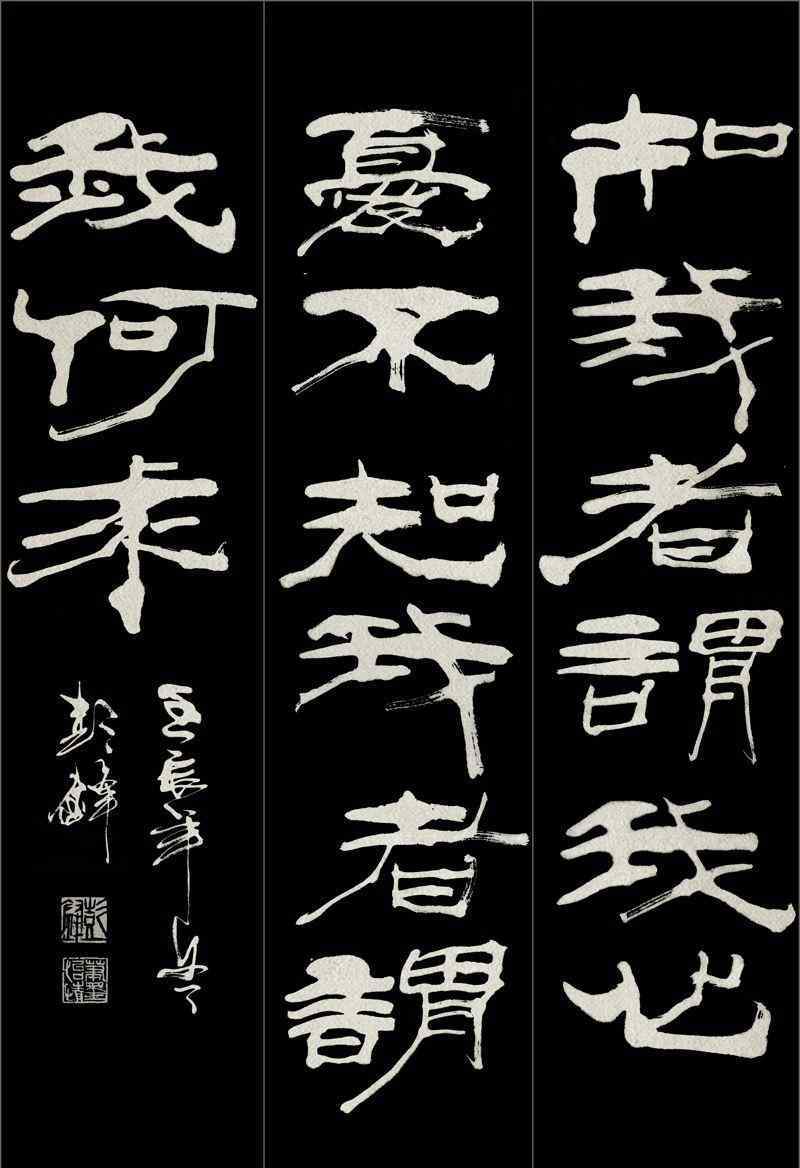 知我者謂我心
憂不知我者謂
我何求
壬辰年
彭